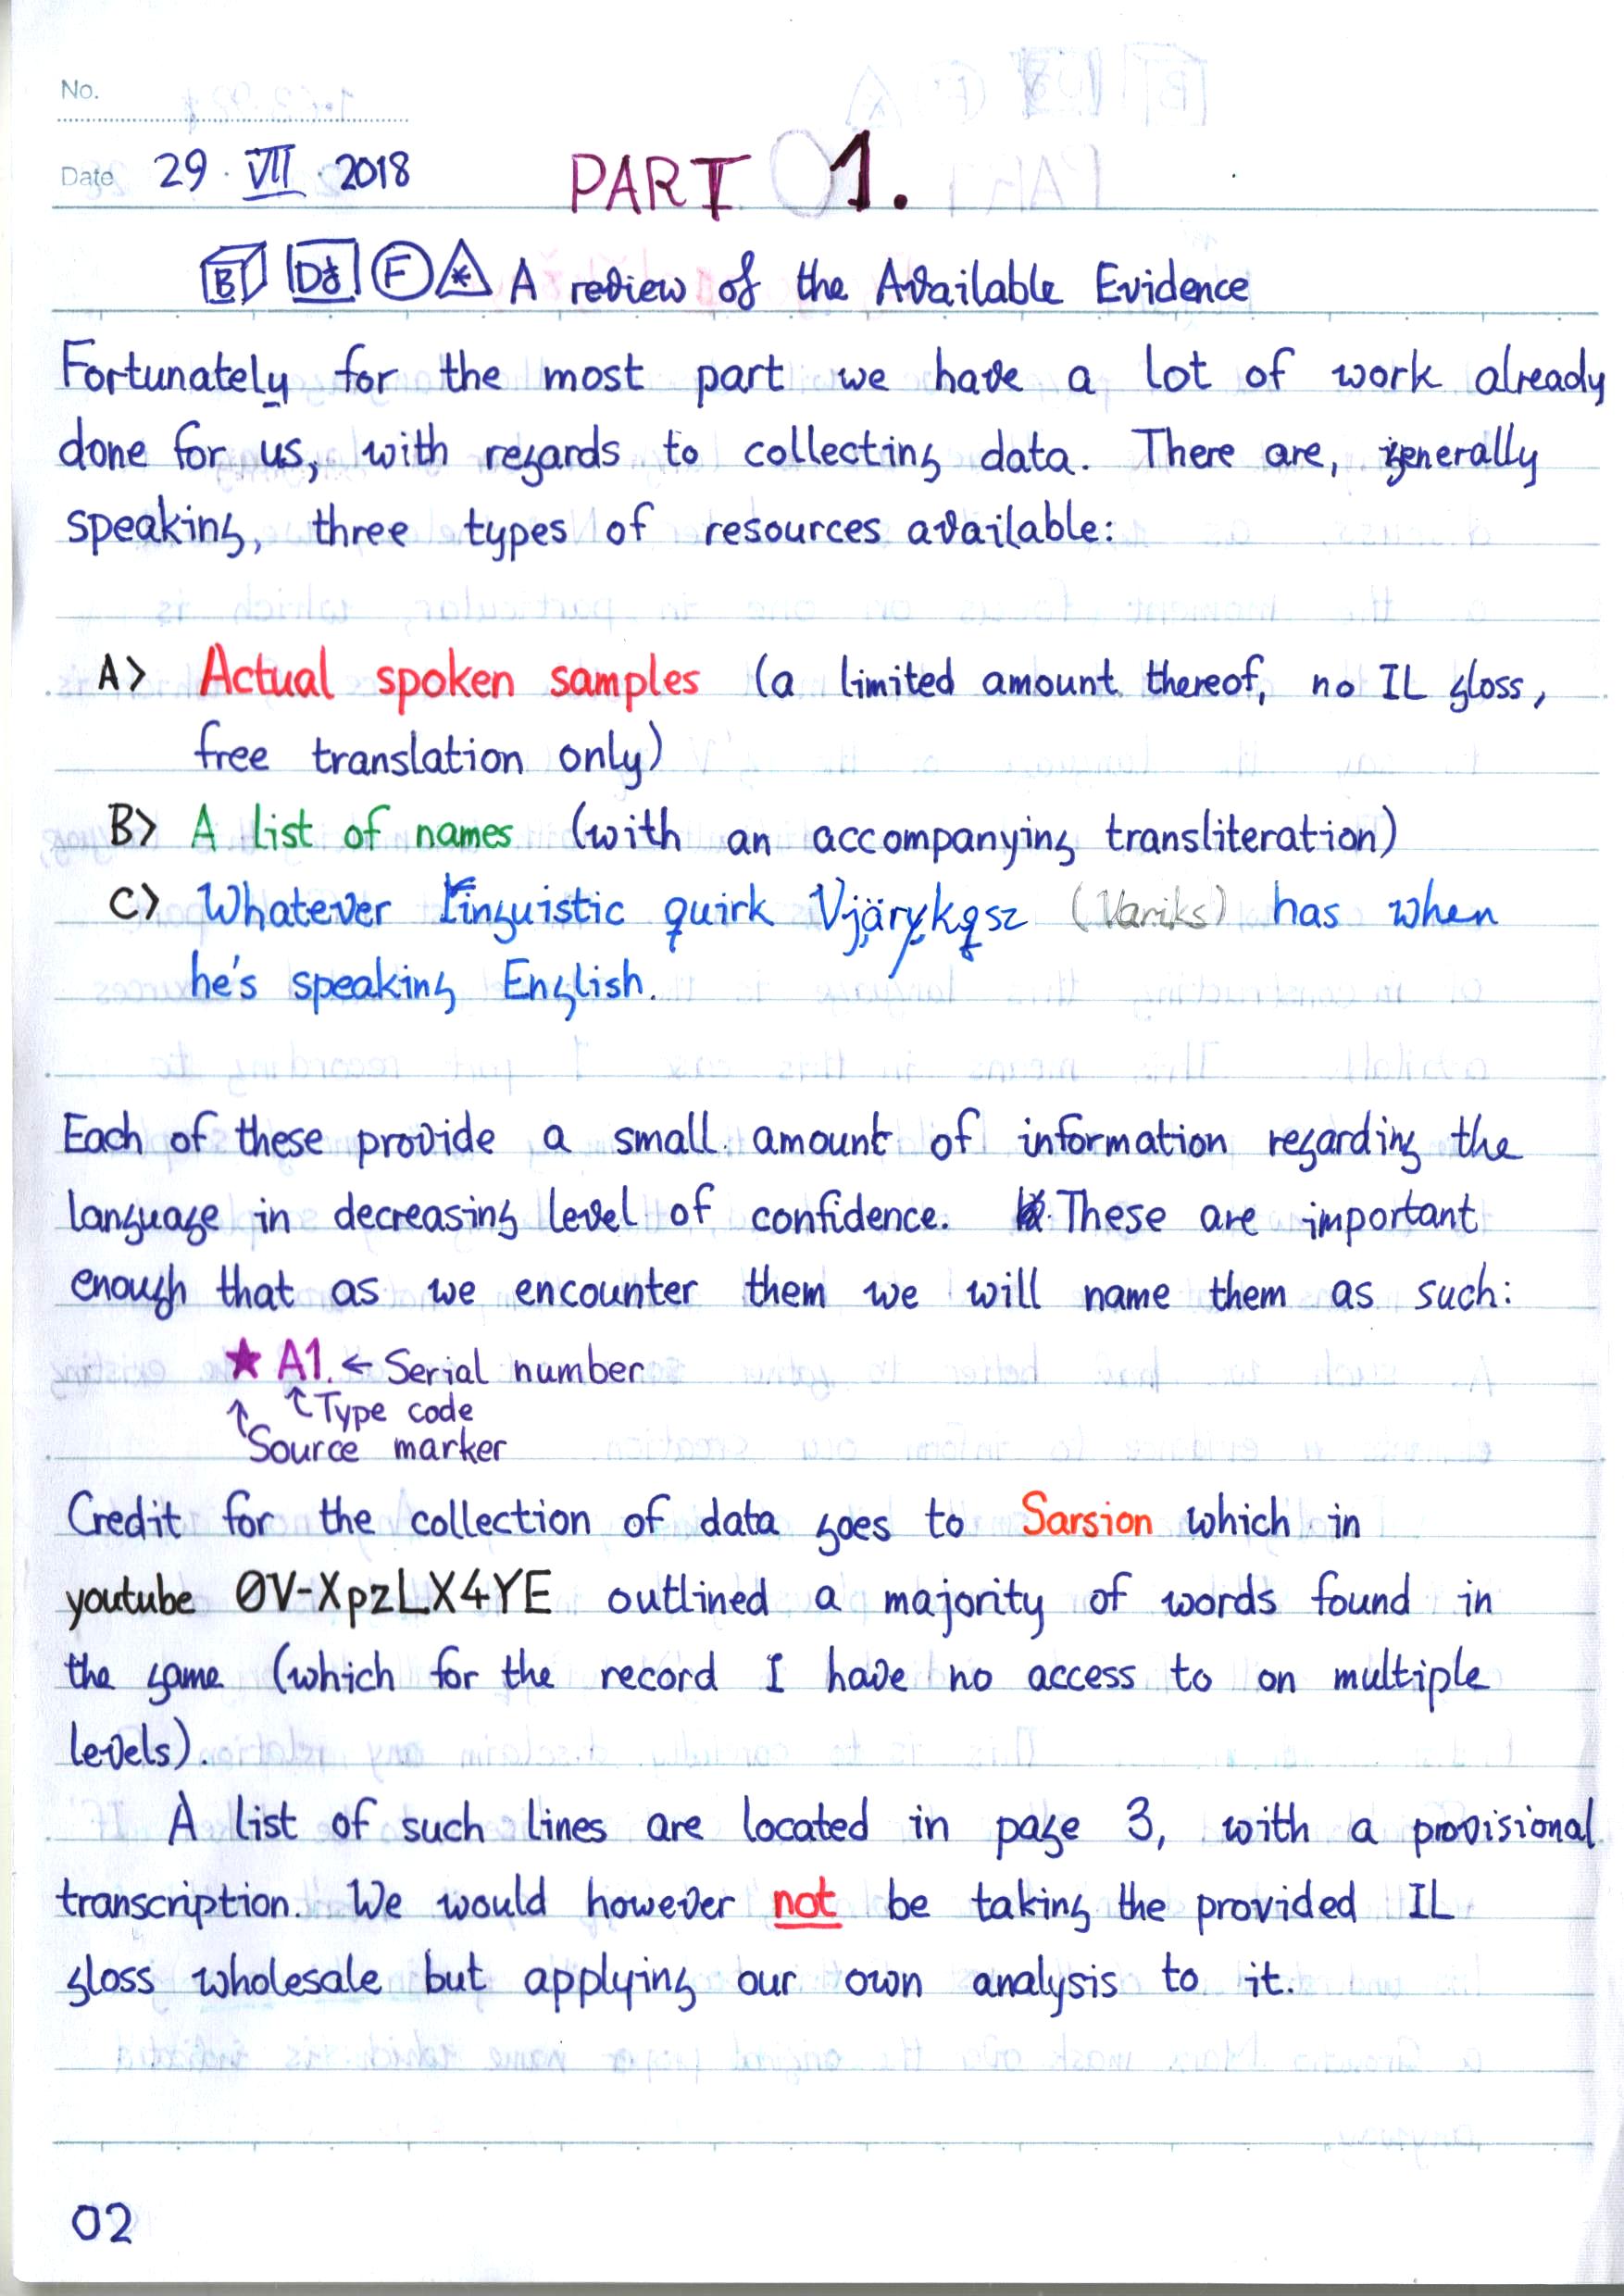 No.
Date 29 · VII · 2018 PART 1.
B F * A review of the Available Evidence
Fortunately for the most part we have a lot of work already
done for us, with regards to collecting data. There are, generally
speaking, three types of resources available:
A> Actual spoken samples (a limited amount thereof, no IL gloss,
free translation only)
B> A list of names (with an accompanying transliteration)
C> Whatever linguistic quirk (Variks) has when
he's speaking English.
Each of these provide a small amount of information regarding the
language in decreasing level of confidence. These are important
enough that as we encounter them we will name them as such:
★ A1. ← Serial number
↑ Type code
↑ Source marker
Credit for the collection of data goes to Sarsion which in
youtube 0V-XpzLX4YE outlined a majority of words found in
the game (which for the record I have no access to on multiple
levels).
A list of such lines are located in page 3, with a provisional
transcription. We would however not be taking the provided IL
gloss wholesale but applying our own analysis to it.
02